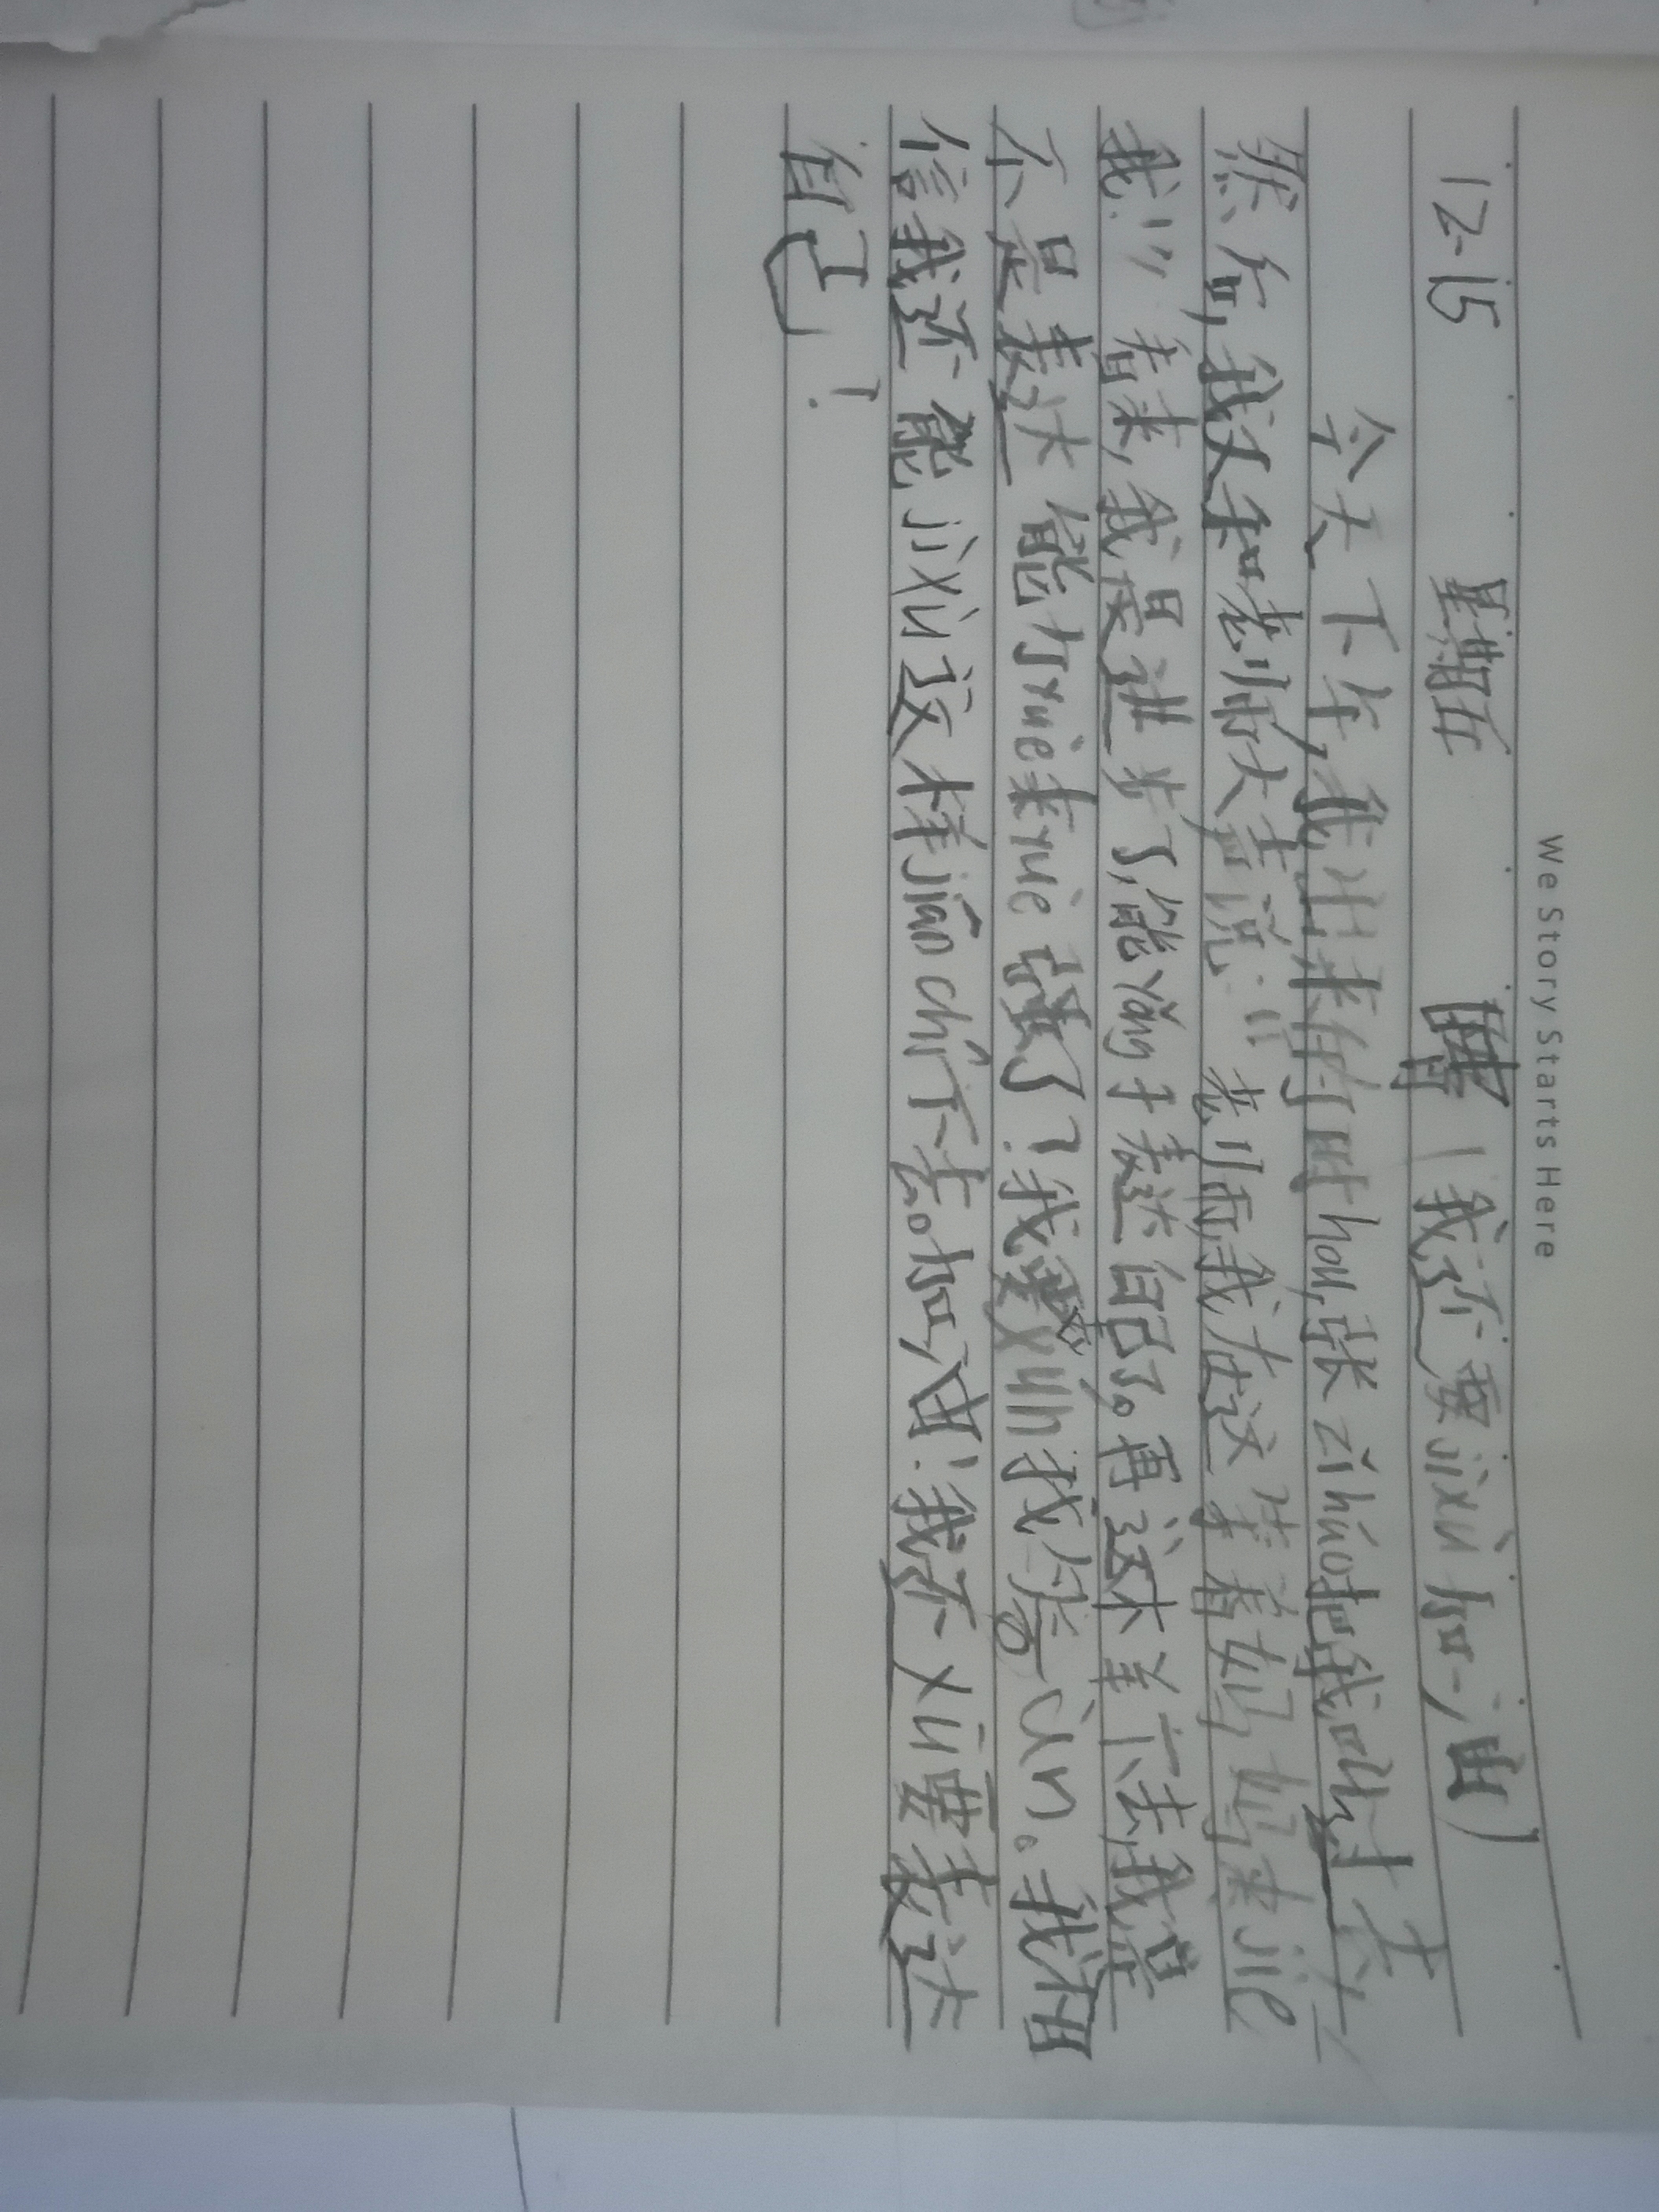 We Story Starts Here
12-15 星期五 晴 (我还要jìxù加油)
今天下午,我出来的时hou,张zǐháo把我叫过去
然后,我又和老师大声说:"老师,我在这等着妈妈来jiē
我!"看来,我是进步了,能yǒng于表达自己了。再这样下去,我是
不是表达能力yuè来yuè强了?我要xùn我。我相
信我还能jìxù这样jiān chí下去。加油!我还xū要表达
自己!